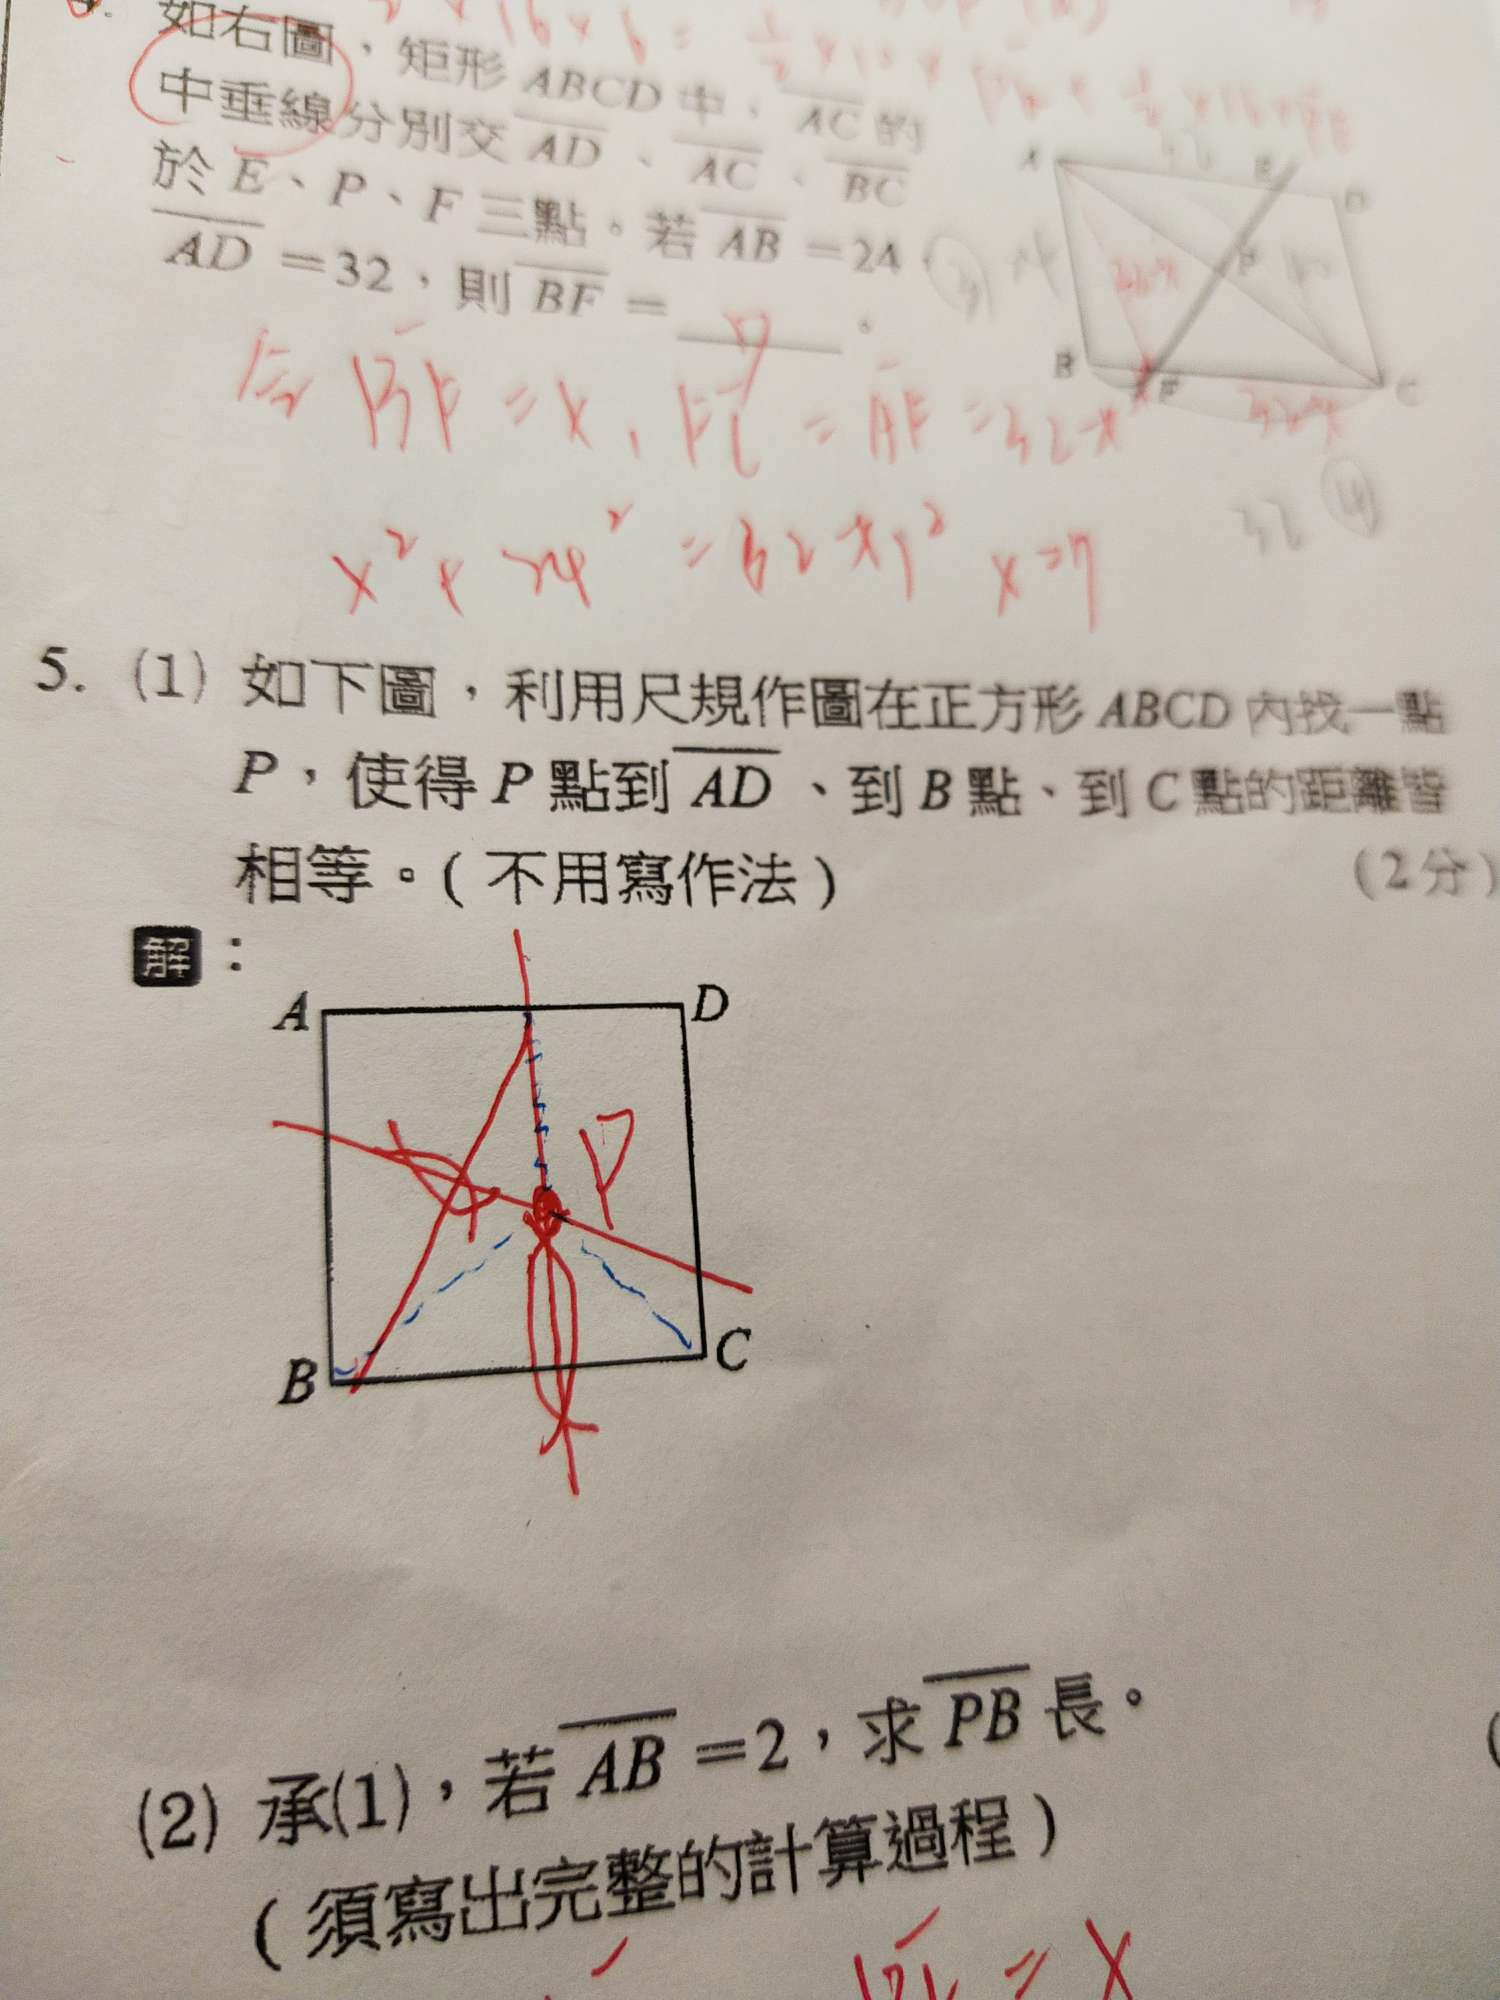 如右圖，矩形ABCD中，AC的
中垂線分別交AD、AC、BC
於E、P、F三點。若AB=24，
AD=32，則BF= 7 。
A
E
D
P
B
F
C
令BF=x，FC=AF=32-x
32
x²+24²=(32-x)² x=7
5. (1) 如下圖，利用尺規作圖在正方形ABCD內找一點
P，使得P點到AD、到B點、到C點的距離皆
相等。(不用寫作法)
(2分)
解：
A
D
P
B
C
(2) 承(1)，若AB=2，求PB長。
(須寫出完整的計算過程)
= x